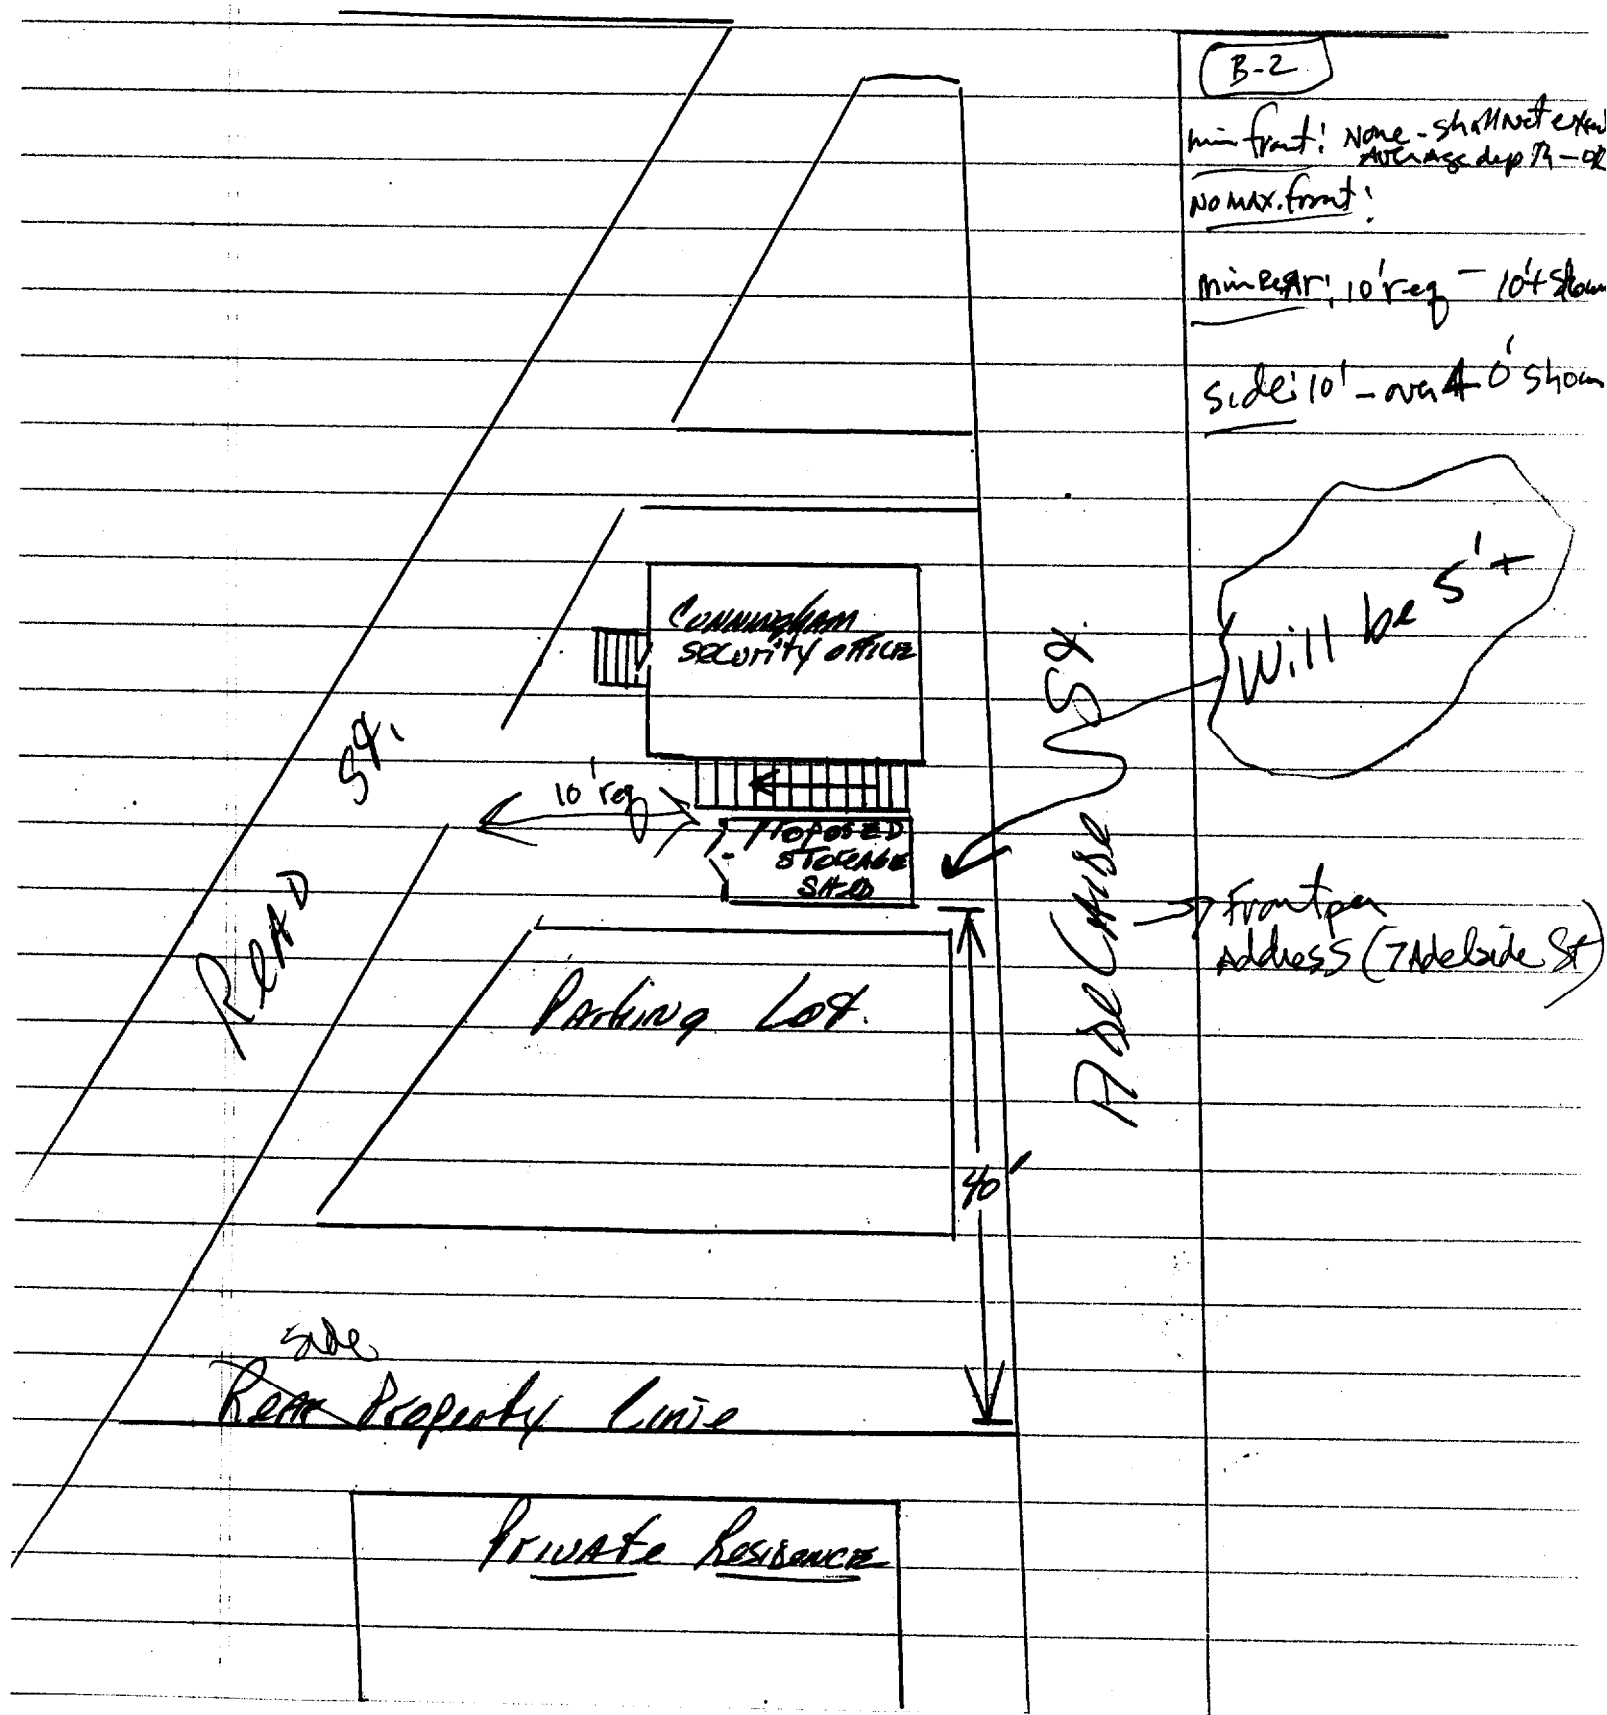 B-2
min front: None - shall not exceed
Average depth - OK
NO MAX. front:
min Rear: 10' req - 10'+ shown
side: 10' - over 40' shown
Will be 5'+
Cunningham
Security Office
St.
10' req
Proposed
Storage
Shed
Read
St.
Front per
Address (7 Adelaide St)
Parking Lot.
40'
side
Rear Property Line
Private Residence